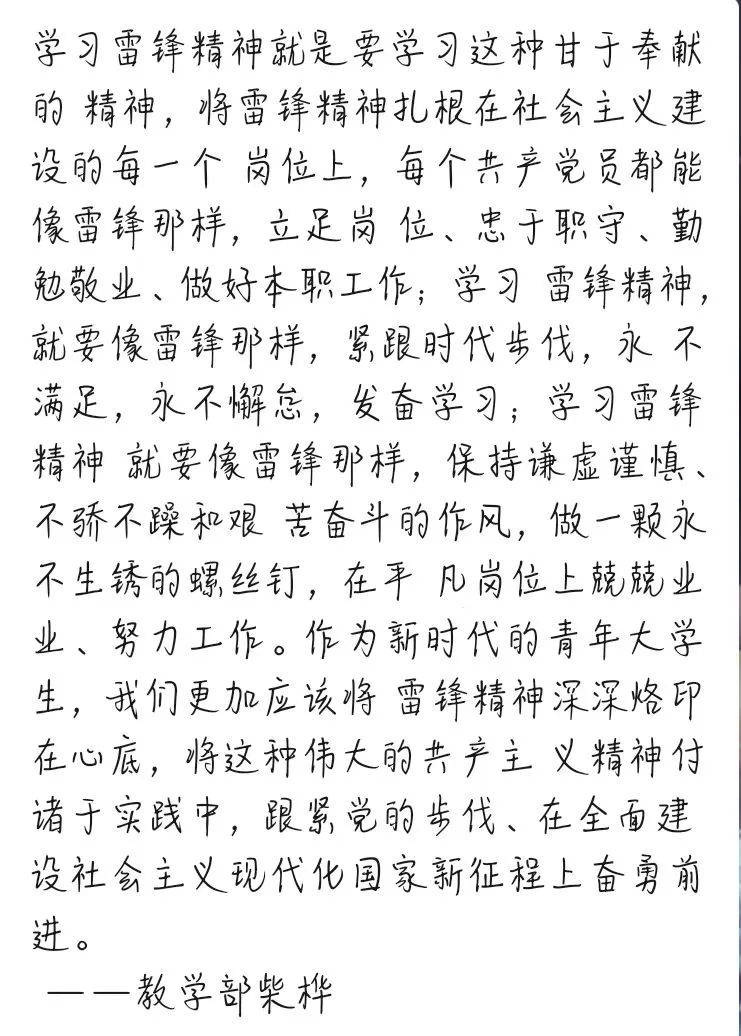 学习雷锋精神就是要学习这种甘于奉献
的 精神，将雷锋精神扎根在社会主义建
设的每一个 岗位上，每个共产党员都能
像雷锋那样，立足岗 位、忠于职守、勤
勉敬业、做好本职工作；学习 雷锋精神，
就要像雷锋那样，紧跟时代步伐，永 不
满足，永不懈怠，发奋学习；学习雷锋
精神 就要像雷锋那样，保持谦虚谨慎、
不骄不躁和艰 苦奋斗的作风，做一颗永
不生锈的螺丝钉，在平 凡岗位上兢兢业
业、努力工作。作为新时代的青年大学
生，我们更加应该将 雷锋精神深深烙印
在心底，将这种伟大的共产主 义精神付
诸于实践中，跟紧党的步伐、在全面建
设社会主义现代化国家新征程上奋勇前
进。
——教学部柴桦